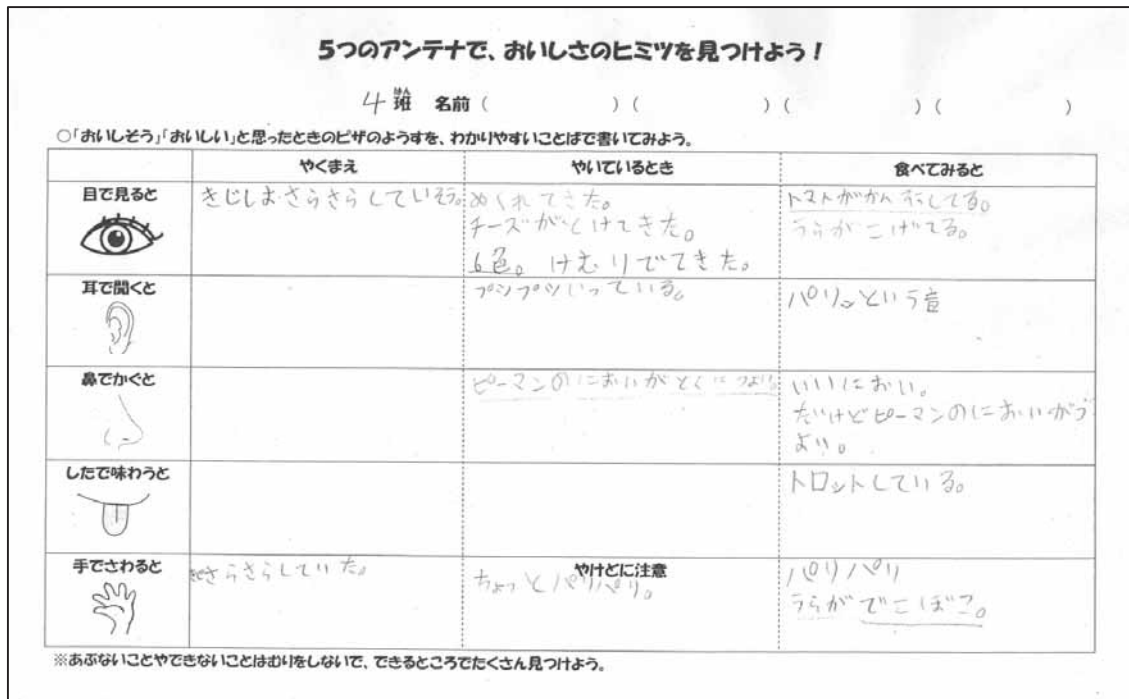 5つのアンテナで、おいしさのヒミツを見つけよう！
4班 名前（ ）（ ）（ ）（ ）
はん
○「おいしそう」「おいしい」と思ったときのピザのようすを、わかりやすいことばで書いてみよう。
やくまえ やいているとき 食べてみると
目で見ると
きじしま さらさらしていそう。
めくれてきた。
チーズがとけてきた。
6色。けむりでてきた。
トマトがかんそうしてる。
うらがこげてる。
耳で聞くと
プツプツいっている。
パリッという音
鼻でかぐと
ピーマンのにおいがとくにつよい。
いいにおい。
だけどピーマンのにおいがつ
よい。
したで味わうと
トロットしている。
手でさわると
さらさらしていた。
やけどに注意
ちょっとパリパリ。
パリパリ
うらがでこぼこ。
※あぶないことやできないことはむりをしないで、できるところでたくさん見つけよう。